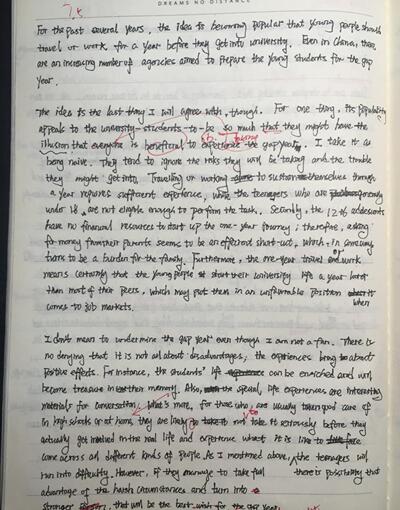 DREAMS NO DISTANCE
7.5
For the past several years, the idea is becoming popular that young people should
travel or work for a year before they get into university. Even in China, there
are an increasing number of agencies aimed to prepare the young students for the gap
year.
The idea is the last thing I will agree with, though. For one thing, its popularity
appeals to the university-students-to-be so much that they might have the
illusion that everyone is beneficial to experience the gap year. I take it as
being naive. They tend to ignore the risks they will be taking and the trouble
they might get into. Travelling or working to sustain themselves through
a year requires sufficient experience, while the teenagers who are generally
under 18, are not eligible enough to perform the task. Secondly, the
have no financial resources to start up the one-year journey; therefore, asking
for money from their parents seems to be an effective short-cut, which, in some way
turns to be a burden for the family. Furthermore, the one-year travel and work
means certainly that the young people start their university life a year later
than most of their peers, which may put them in an unfavorable position when it
comes to job markets.
I don't mean to undermine the gap year even though I am not a fan. There is
no denying that it is not all about disadvantages, the experiences bring about
positive effects. For instance, the students' life can be enriched and will
become treasure in their memory. Also, the special life experiences are interesting
materials for conversation. What's more, for those who are usually taken good care of
in high schools or at home, they are likely to take it seriously before they
actually get involved in the real life and experience what it is like to
come across all different kinds of people. As I mentioned above, the teenagers will
run into difficulty. However, if they manage to take full there is possibility that
advantage of the harsh circumstances and turn into
stronger that will be the best wish for the gap year.